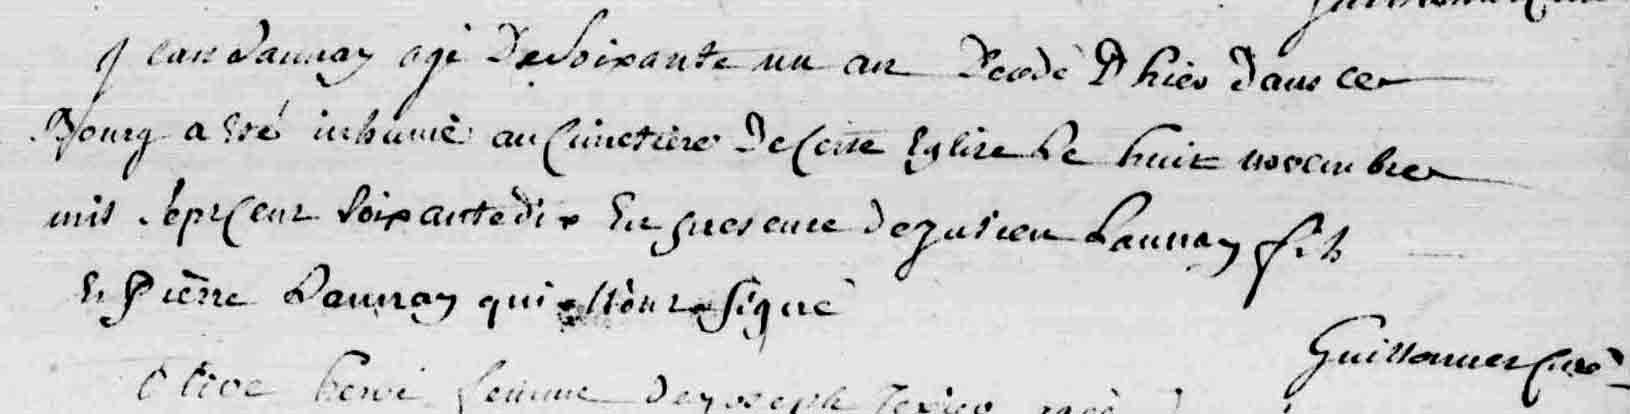 Jean Launay agé De Soixante un an Decedé D hier dans ce
Bourg a Eté inhumé au Cimetiere De Cette Eglise Le huit novembre
mil Sept Cent Soixante dix En presence de Julien Launay fils
Et Pierre Launay qui Signé
Guillonner Curé
Olive hervé femme de joseph